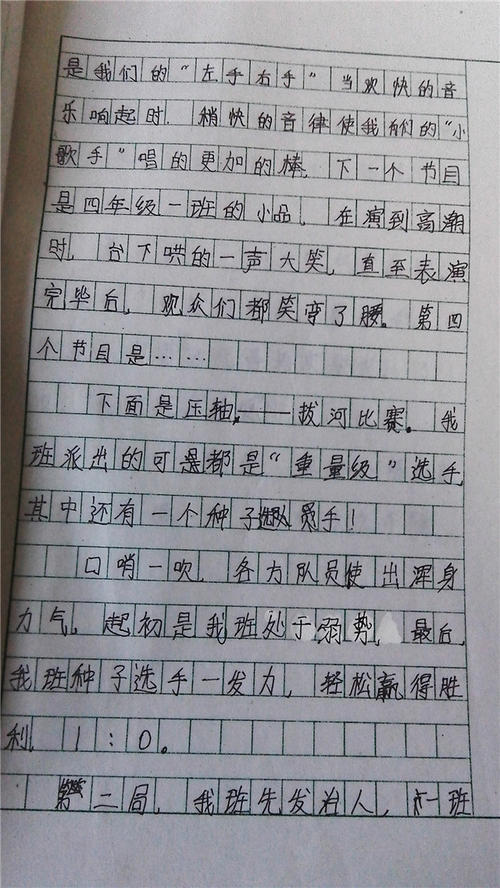 是我们的“左手右手”当欢快的音
乐响起时，稍快的音律使我们的“小
歌手”唱的更加的棒，下一个节目
是四年级一班的小品，在演到高潮
时，台下哄的一声大笑，直至表演
完毕后，观众们都笑弯了腰。第四
个节目是……
下面是压轴——拔河比赛。我
班派出的可是都是“重量级”选手，
其中还有一个种子选手！
口哨一吹，各方队员使出浑身
力气，起初是我班处于弱势，最后，
我班种子选手一发力，轻松赢得胜
利，1:0。
第二局，我班先发治人，一班